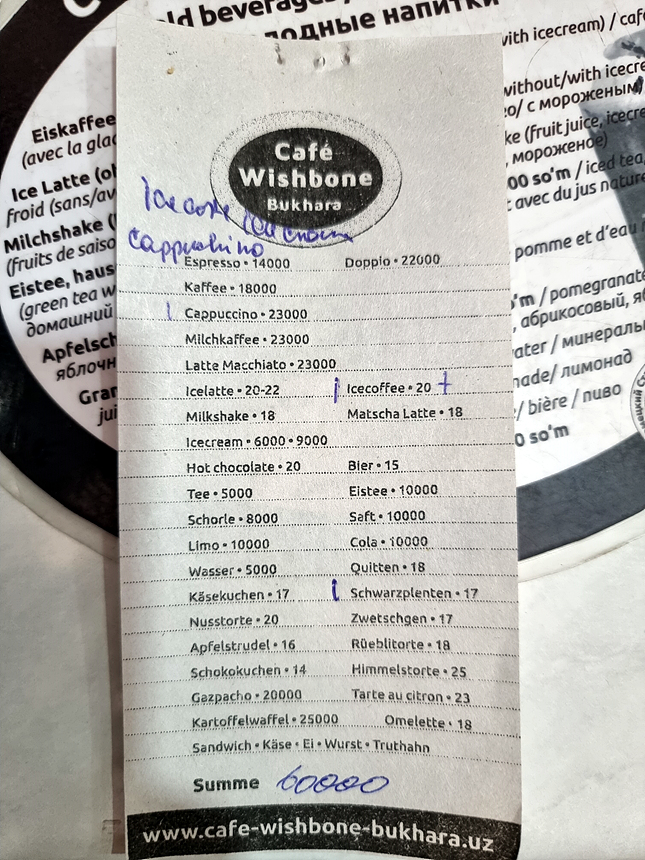 ld beverages
лодные напитки
Eiskaffee
(avec la glac
Ice Latte (oh
froid (sans/av
Milchshake (
(fruits de saiso
Eistee, haus
(green tea w
домашний
Apfelsch
яблочн
Gran
jui
with icecream) / caf
without/with icecre
о/ с мороженым)
ke (fruit juice, icecre
, мороженое)
00 so'm / iced tea,
t avec du jus nature
pomme et d'eau
'm / pomegranate
, абрикосовый, я
ater / минераль
nade/ лимонад
/ bière / пиво
0 so'm
Café
Wishbone
Bukhara
Cappuchino
Espresso • 14000 Doppio • 22000
Kaffee • 18000
Cappuccino • 23000
Milchkaffee • 23000
Latte Macchiato • 23000
Icelatte • 20-22 Icecoffee • 20 +
Milkshake • 18 Matscha Latte • 18
Icecream • 6000 • 9000
Hot chocolate • 20 Bier • 15
Tee • 5000 Eistee • 10000
Schorle • 8000 Saft • 10000
Limo • 10000 Cola • 10000
Wasser • 5000 Quitten • 18
Käsekuchen • 17 Schwarzplenten • 17
Nusstorte • 20 Zwetschgen • 17
Apfelstrudel • 16 Rüeblitorte • 18
Schokokuchen • 14 Himmelstorte • 25
Gazpacho • 20000 Tarte au citron • 23
Kartoffelwaffel • 25000 Omelette • 18
Sandwich • Käse • Ei • Wurst • Truthahn
Summe 60000
www.cafe-wishbone-bukhara.uz